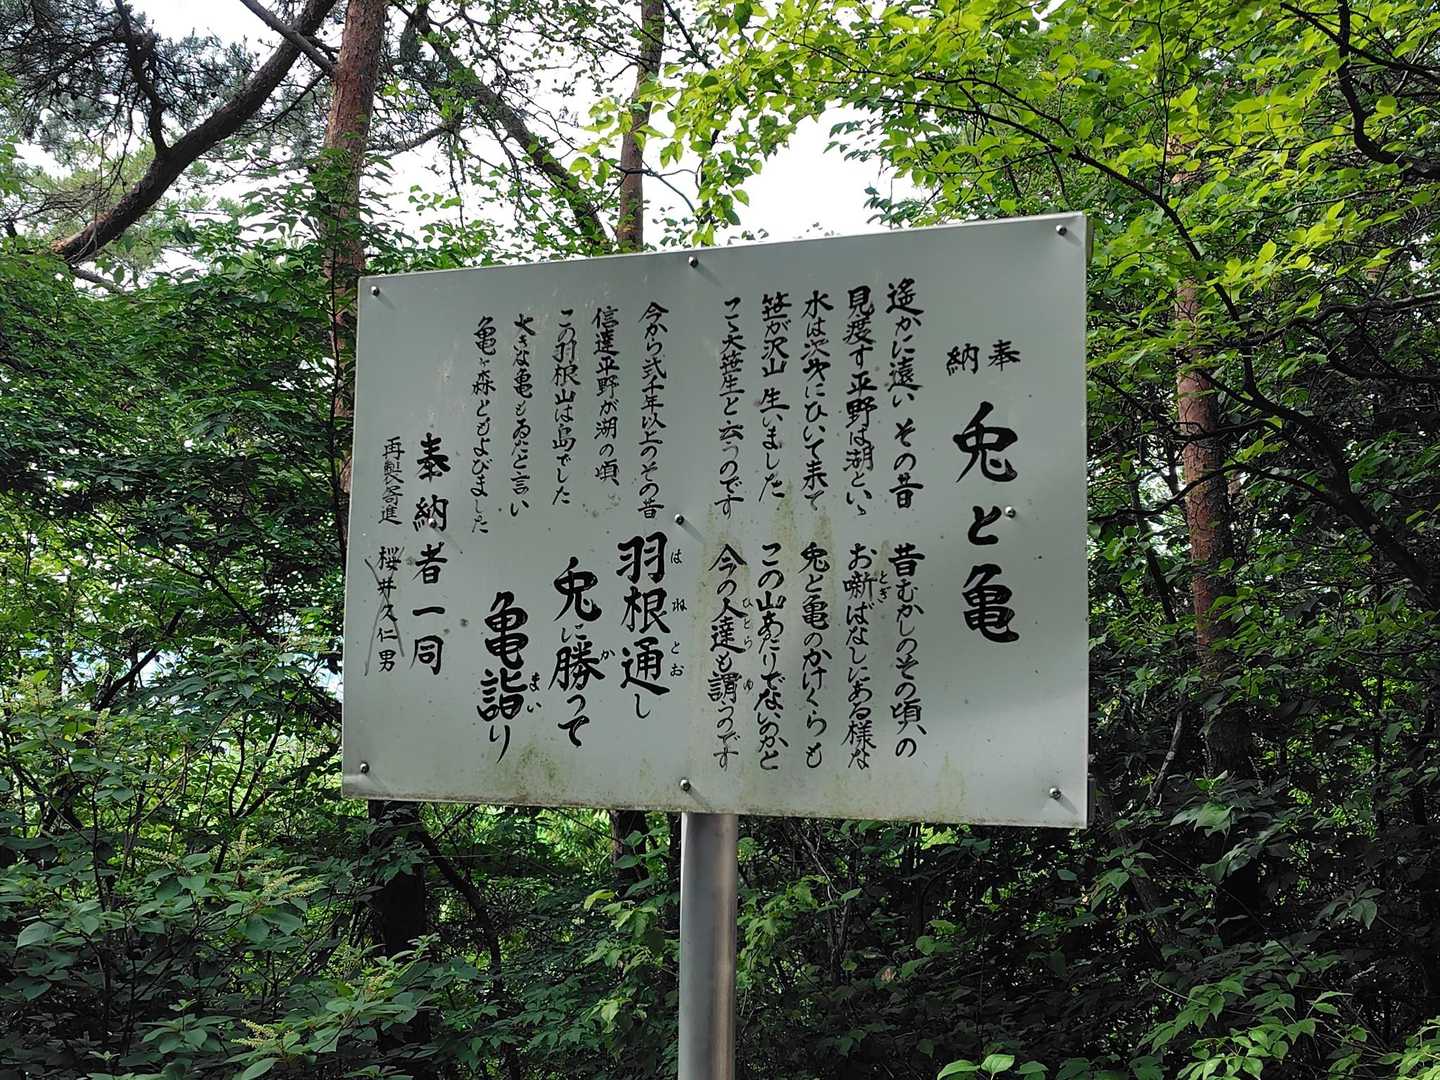 奉納
兎と亀
遙かに遠い その昔
見渡す平野は湖といゝ
水は次第にひいて来て
笹が沢山 生いました
こゝ大笹生と云うのです
昔むかしのその頃、の
お噺ばなしにある様な
とぎ
兎と亀のかけくらも
この山あたりでないのかと
今の人達も謂うのです
ひとら ゆ
今から弐千年以上のその昔
信達平野が湖の頃、
この羽根山は島でした
大きな亀もゐたと言い
亀ヶ森ともよびました
羽根通し
はねとお
兎に勝って
か
亀詣り
まい
奉納者一同
再製寄進 桜井久仁男